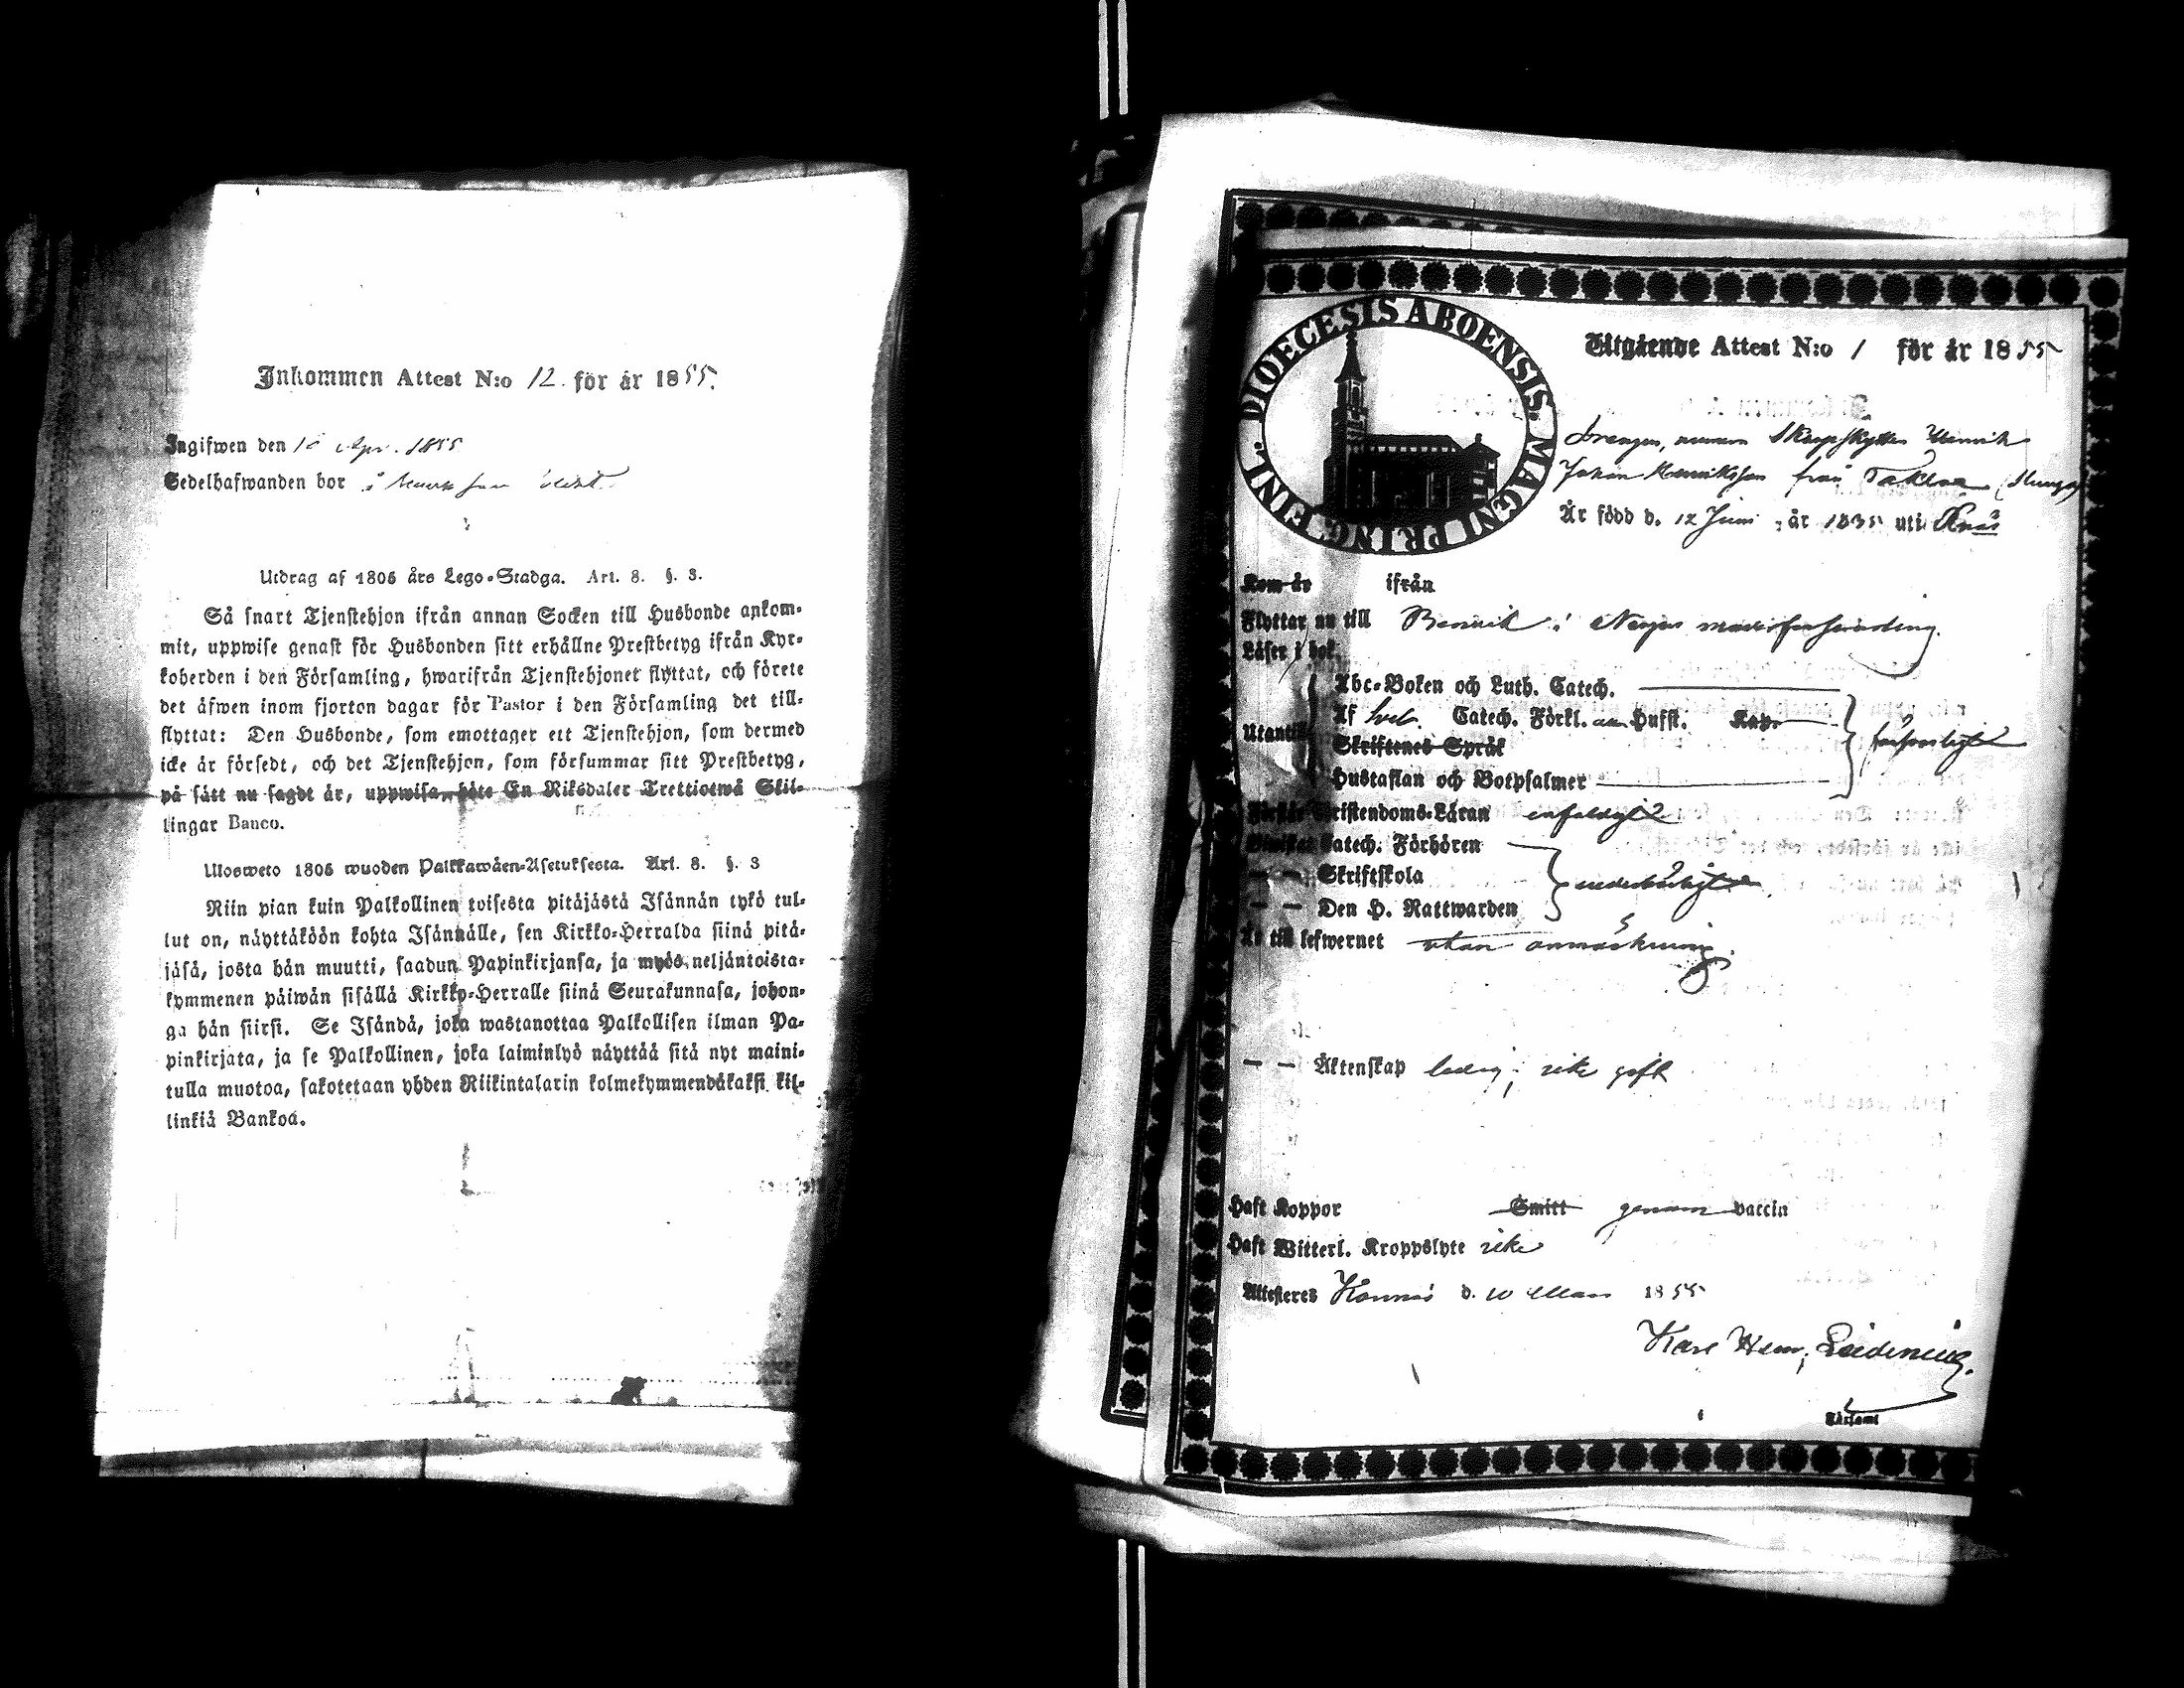 Inkommen Attest N:o 12. för år 1855.
Ingifwen den Apr. 1855
Sedelhafwanden bor i
Utdrag af 1805 års Lego-Stadga. Art. 8. §. 3.
Så snart Tjenstehjon ifrån annan Socken till Husbonde ankom-
mit, uppwise genast för Husbonden sitt erhållne Prestbetyg ifrån Kyr-
koherden i den Församling, hwarifrån Tjenstehjonet flyttat, och förete
det äfwen inom fjorton dagar för Pastor i den Församling det till-
flyttat: Den Husbonde, som emottager ett Tjenstehjon, som dermed
icke är försedt, och det Tjenstehjon, som försummar sitt Prestbetyg,
på sätt nu sagdt är, uppwisa, böte En Riksdaler Trettiotwå Skil-
lingar Banco.
Ulosweto 1805 wuoden Palkkawäen-Asetuksesta. Art. 8. §. 3
Niin pian kuin Palkollinen toisesta pitäjästä Isännän tykö tul-
lut on, näyttäköön kohta Isännälle, sen Kirkko-Herralda siinä pitä-
jäsä, josta hän muutti, saadun Papinkirjansa, ja myös neljäntoista-
kymmenen päiwän sisällä Kirkko-Herralle siinä Seurakunnasa, johon-
ga hän siirsi. Se Isändä, joka wastanottaa Palkollisen ilman Pa-
pinkirjata, ja se Palkollinen, joka laiminlyö näyttää sitä nyt maini-
tulla muotoa, sakotetaan yhden Riikintalarin kolmekymmendäkaksi kil-
linkiä Bankoa.
DIOECESIS ABOENSIS. MAGNI PRINC. FINL.
Utgående Attest N:o 1 för år 1855
Drengen, numera Skarpskytten Henrik
Johan Henriksson från
Är född d. 12 Juni år 1835 uti
Kom år ifrån
Flyttar nu till i
Läser i bok
Abc-Boken och Luth. Catech.
Utantill Af Catech. Förkl. Hufst. Kap.
Skriftenes Språk försvarligt
Hustaflan och Botpsalmer
Förstår Christendoms-Läran enfaldigt
Catech. Förhören
— — Skriftskola
— — Den H. Nattwarden
Är till lefwernet utan anmärkning.
— — Äktenskap ledig; icke gift
Haft Koppor Smitt genom vaccin
Haft Witterl. Kroppslyte icke
Attesteras d. 10 Mars 1855
Karl Henr.